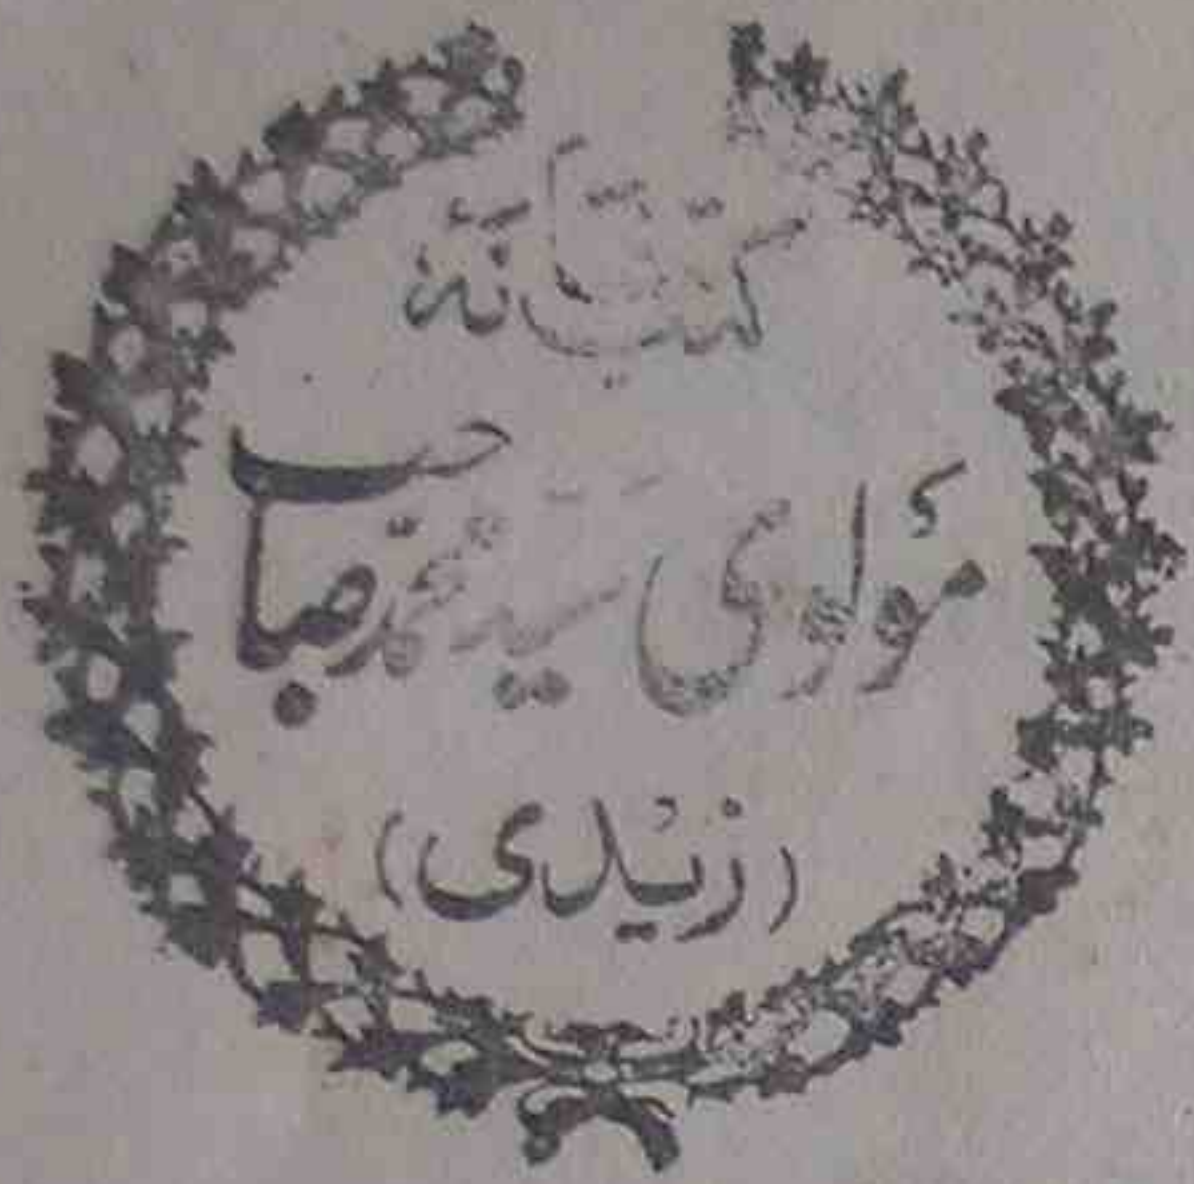 کتبخانہ
مولوی سید محمد صاحب
(زیدی)